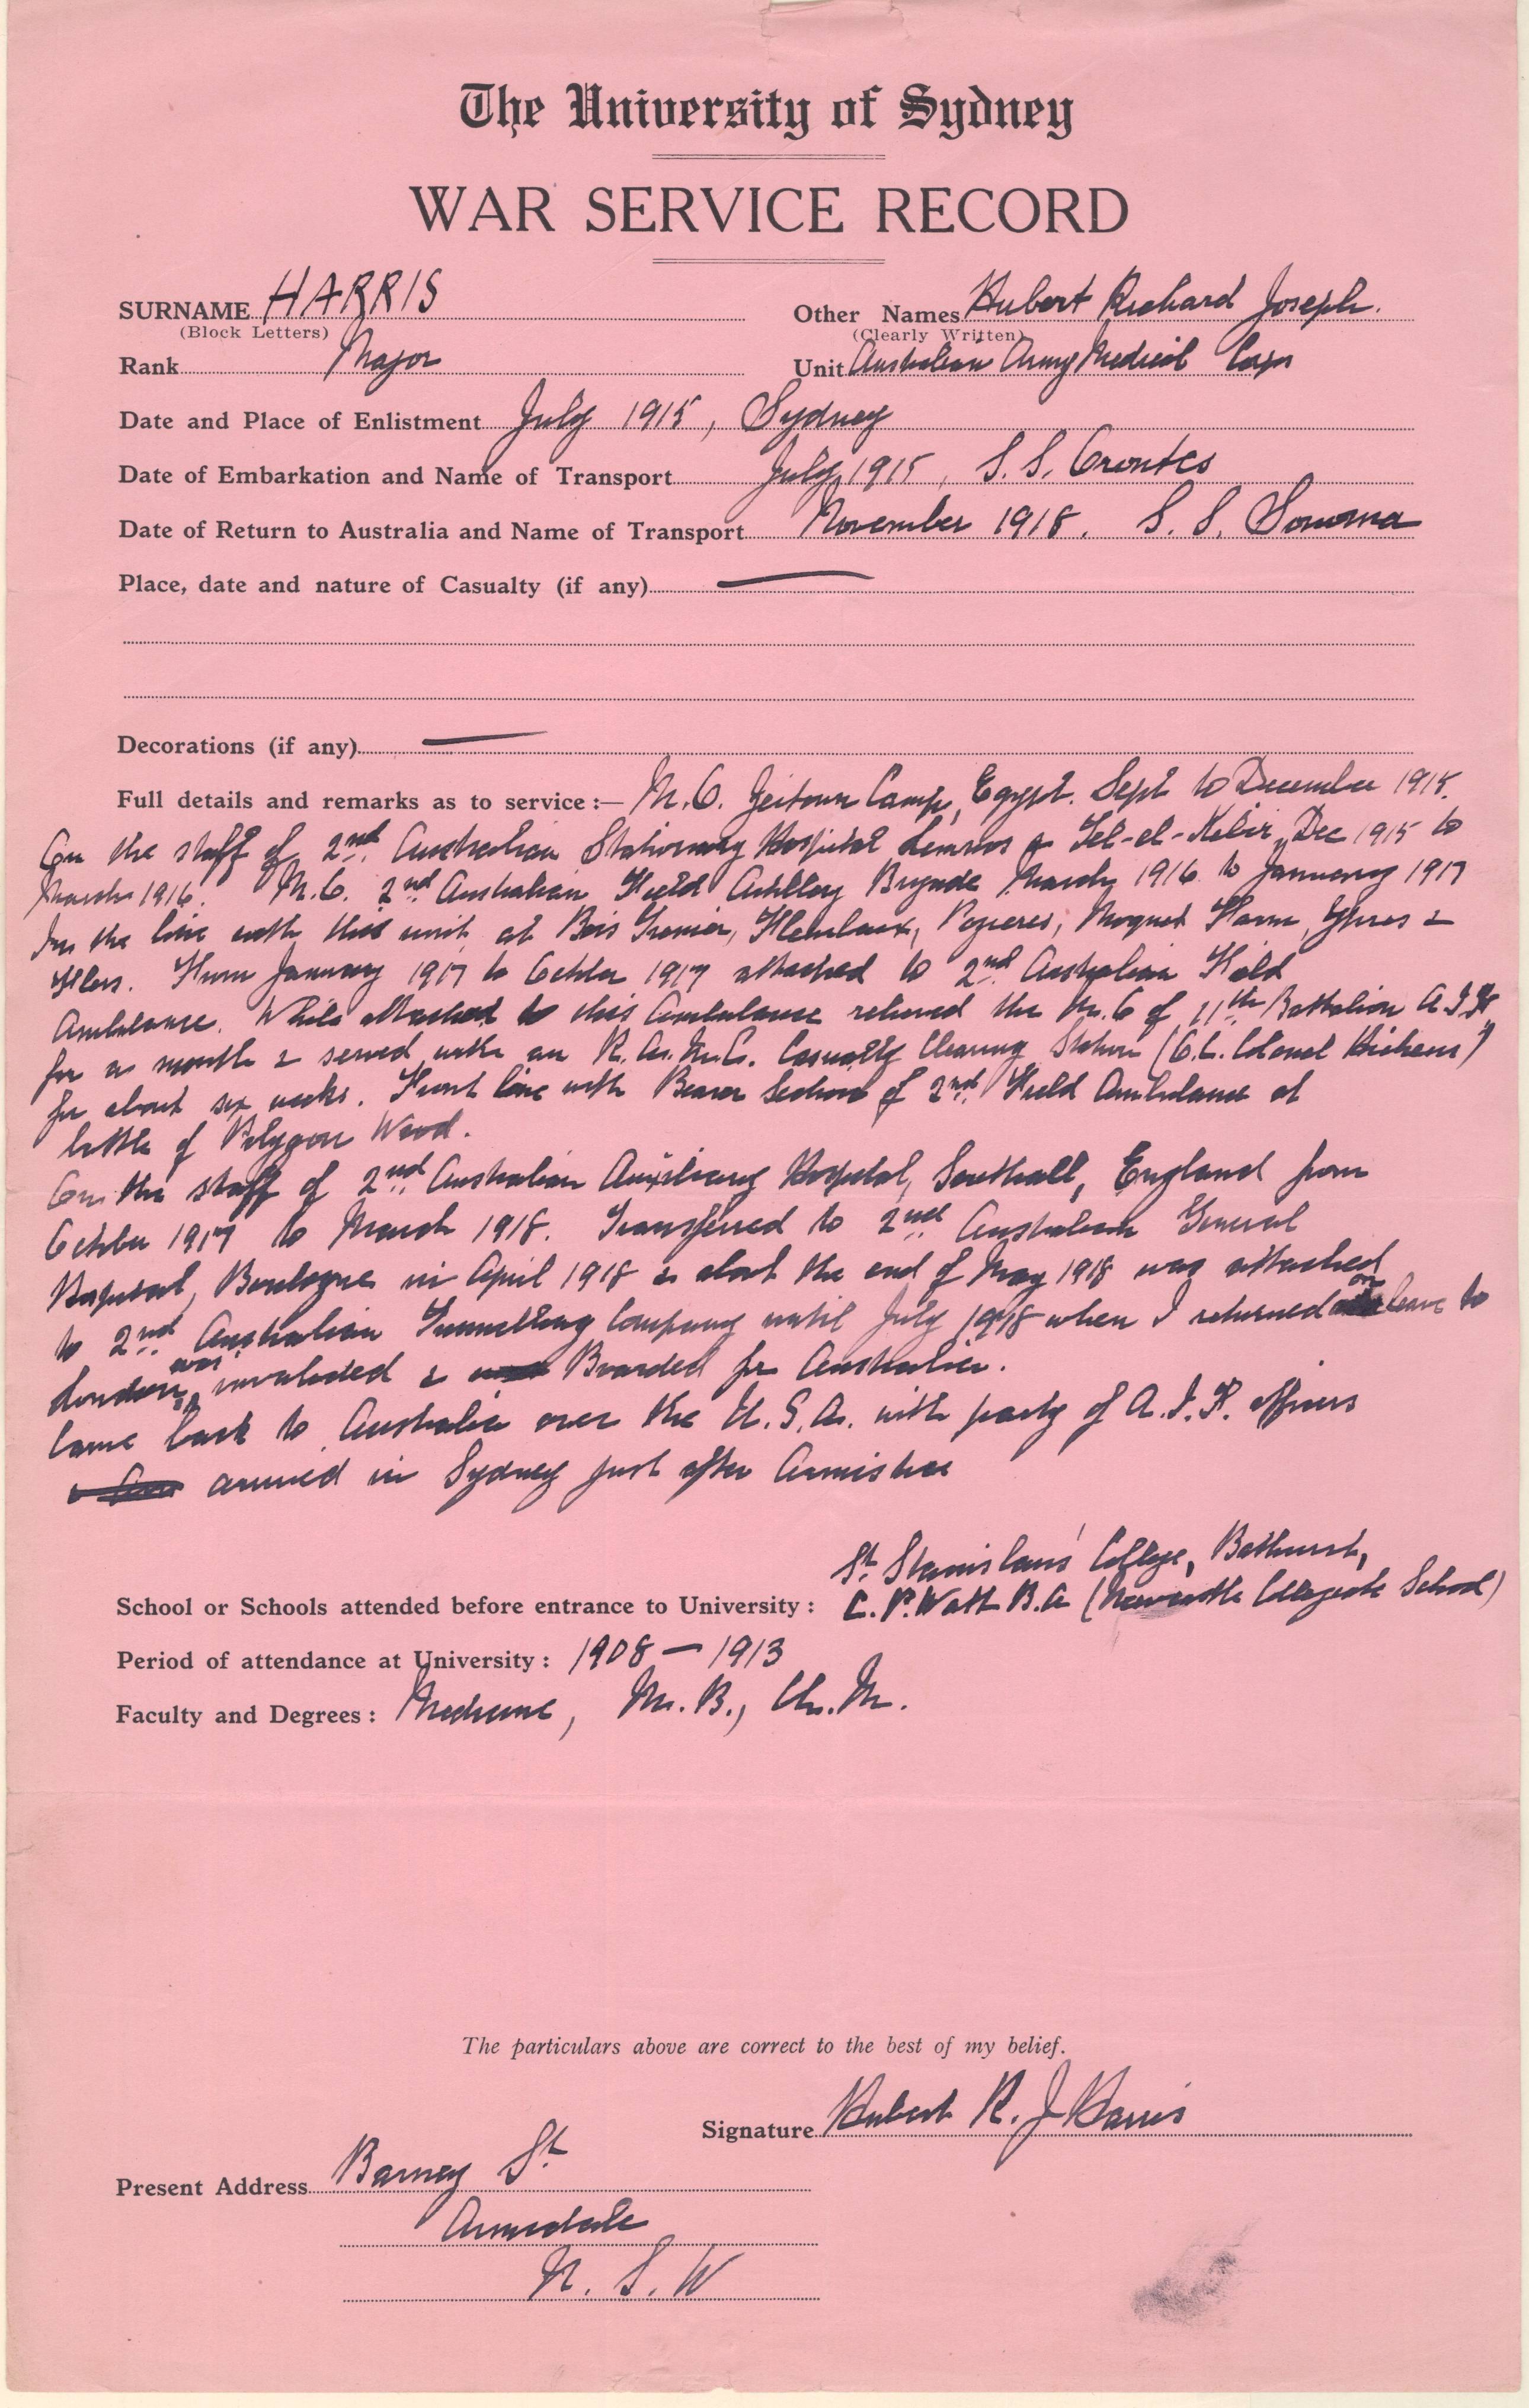 The University of Sydney
WAR SERVICE RECORD
SURNAME HARRIS Other Names Hubert Richard Joseph.
(Block Letters) (Clearly Written)
Rank Major Unit Australian Army Medical Corps
Date and Place of Enlistment July 1915, Sydney
Date of Embarkation and Name of Transport July 1915, S.S. Orontes
Date of Return to Australia and Name of Transport November 1918. S.S. Sonoma
Place, date and nature of Casualty (if any) —
Decorations (if any) —
Full details and remarks as to service :— M.O. Zeitoun Camp, Egypt. Sept to December 1915.
On the staff of 2nd Australian Stationary Hospital Lemnos & Tel-el-Kebir, Dec 1915 to
March 1916. M.O. 2nd Australian Field Artillery Brigade March 1916 to January 1917
In the line with this unit at Bois Grenier, Fleurbaix, Pozieres, Moquet Farm, Ypres &
Flers. From January 1917 to October 1917 attached to 2nd Australian Field
Ambulance. While attached to this Ambulance relieved the M.O of 11th Battalion A.I.F
for a month & served with an R.A.M.C. Casualty Clearing Station (O.C. Colonel)
for about six weeks. Front line with Bearer Section of 2nd Field Ambulance at
battle of Polygon Wood.
On the staff of 2nd Australian Auxiliary Hospital, Southall, England from
October 1917 to March 1918. Transferred to 2nd Australian General
Hospital, Boulogne in April 1918 & about the end of May 1918 was attached
to 2nd Australian Tunnelling Company until July 1918 when I returned on leave to
London, was invalided & Boarded for Australia.
Came back to Australia over the U.S.A. with party of A.I.F. officers
arrived in Sydney just after Armistice
St Stanislaus' College, Bathurst,
School or Schools attended before entrance to University : C.P. Watt B.A (Newcastle Collegiate School)
Period of attendance at University : 1908 — 1913
Faculty and Degrees : Medicine, M.B., Ch.M.
The particulars above are correct to the best of my belief.
Signature Hubert R. J Harris
Present Address Barney St
Armidale
N.S.W